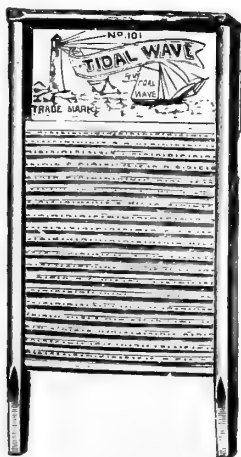 No. 101
TIDAL WAVE
WAVE
TRADE MARK